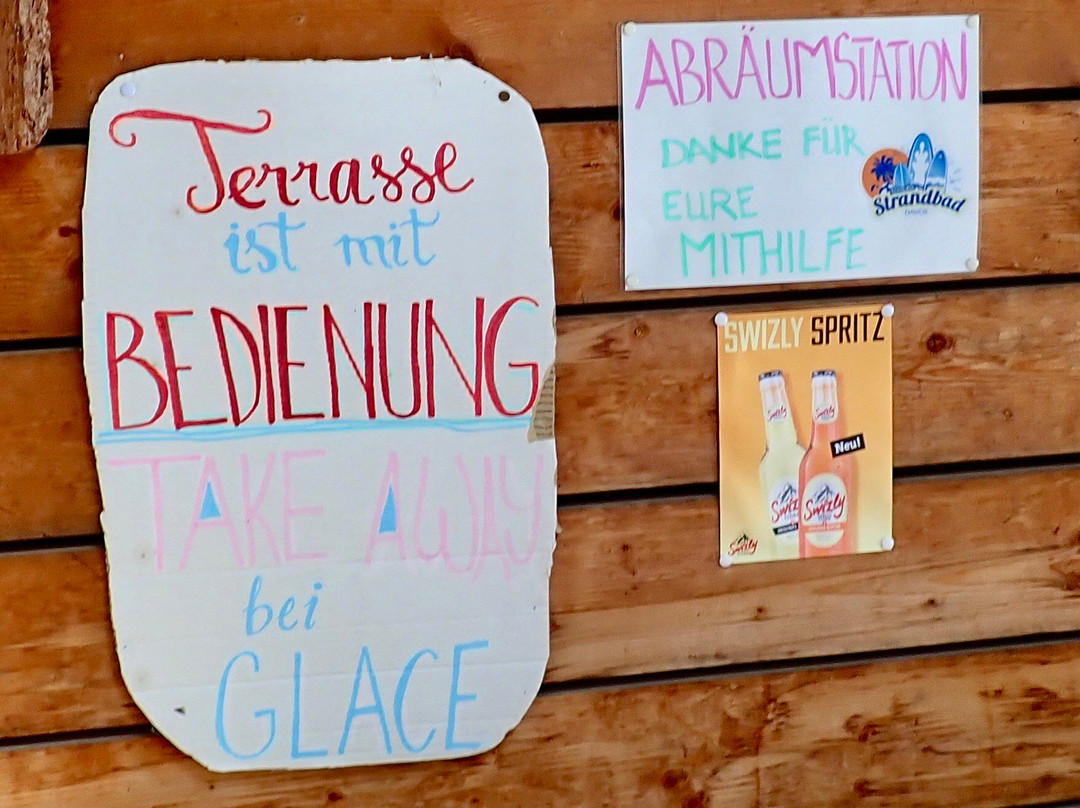 Terrasse
ist mit
BEDIENUNG
TAKE AWAY
bei
GLACE
ABRÄUMSTATION
DANKE FÜR
EURE
MITHILFE
Strandbad
SWIZLY SPRITZ
Swizly
Swizly
Neu!
Swizly
Swizly
Swizly